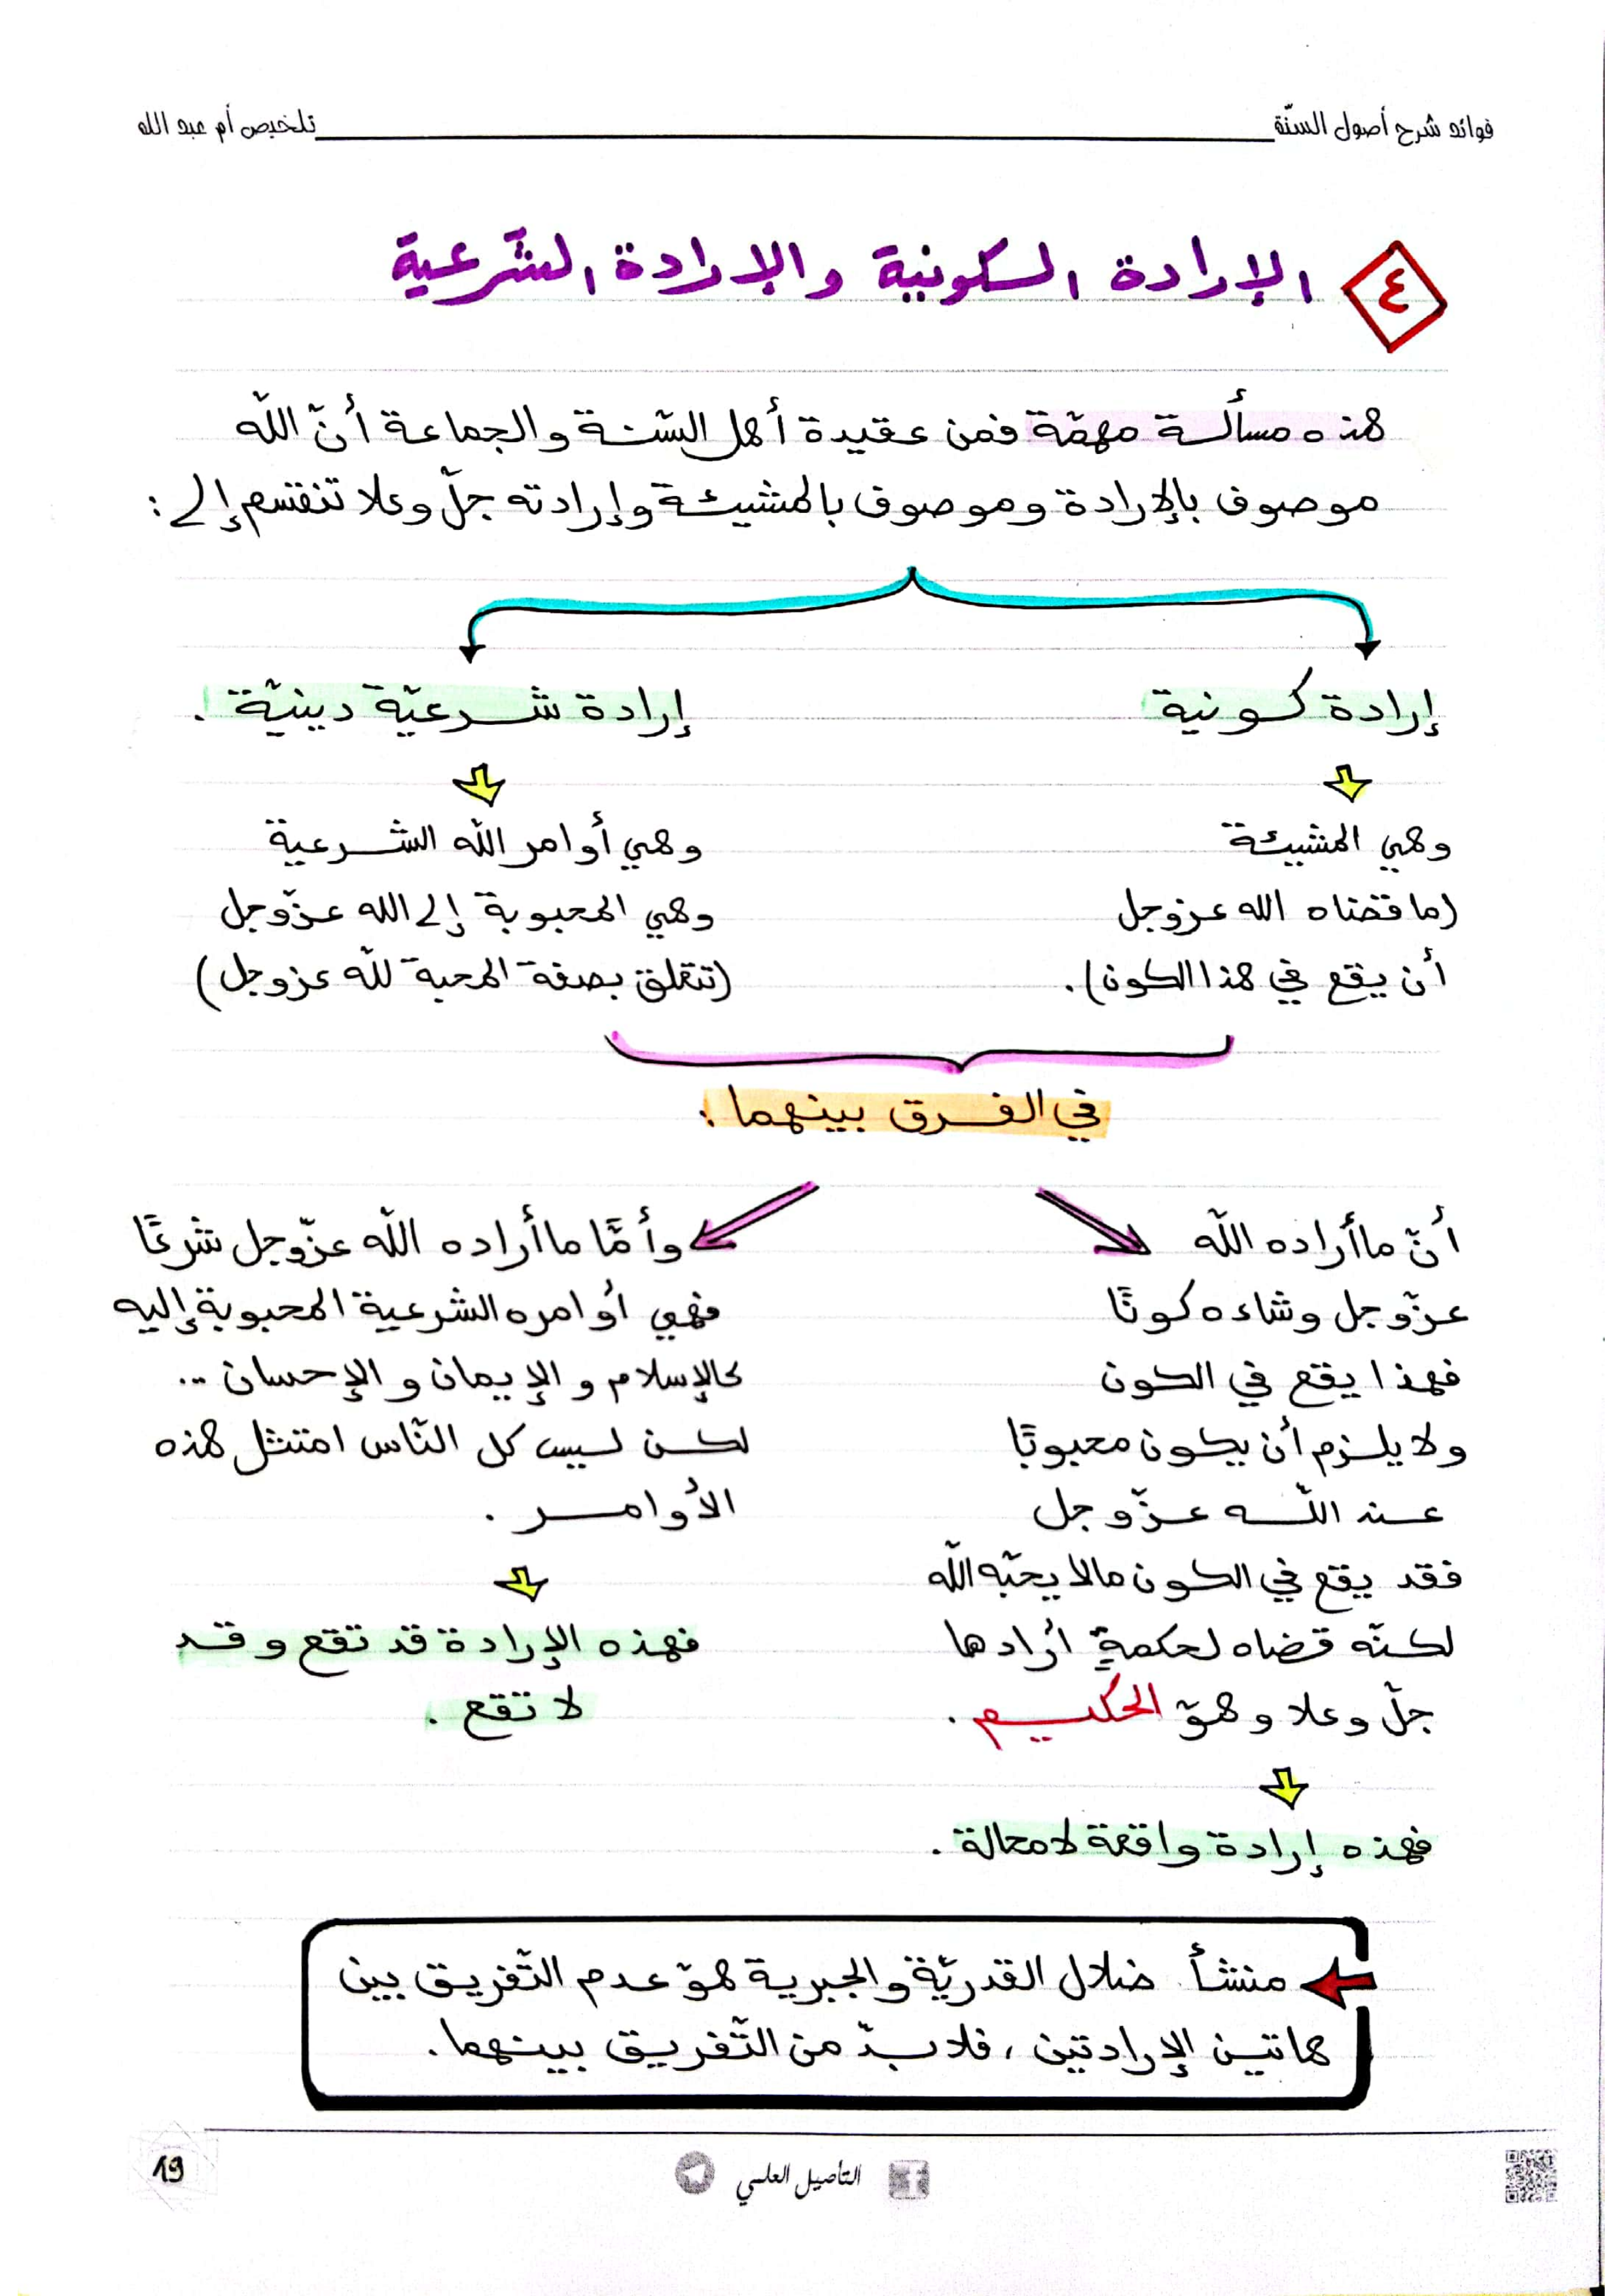 فوائد شرح أصول السنّة
تلخيص أم عبد الله
٤
الإرادة الكونية والإرادة الشّرعية
هذه مسألة مهمّة فمن عقيدة أهل السّنة والجماعة أنّ اللّه
موصوف بالإرادة وموصوف بالمشيئة وإرادته جلّ وعلا تنقسم إلى :
إرادة كونية
وهي المشيئة
(ما قضاه الله عزوجل
أن يقع في هذا الكون) .
إرادة شرعيّة دينيّة .
وهي أوامر اللّه الشرعية
وهي المحبوبة إلى الله عزّوجل
(تتعلق بصفة المحبة للّه عزوجل)
في الفرق بينهما .
أنّ ما أراده اللّه
عزّوجل وشاءه كونًا
فهذا يقع في الكون
ولا يلزم أن يكون محبوبًا
عند اللّه عزّوجل
فقد يقع في الكون مالا يحبّه اللّه
لكنّه قضاه لحكمةٍ أرادها
جلّ وعلا وهوّ الحكيم .
فهذه إرادة واقعة لامحالة .
وأمّا ما أراده اللّه عزّوجل شرعًا
فهي أوامره الشرعية المحبوبة إليه
كالإسلام و الإيمان و الإحسان ...
لكن ليس كل النّاس امتثل هذه
الأوامر .
فهذه الإرادة قد تقع و قد
لا تقع .
منشأ ضلال القدريّة والجبرية هوّ عدم التّفريق بين
هاتين الإرادتين ، فلا بدّ من التّفريق بينهما .
التأصيل العلمي
19